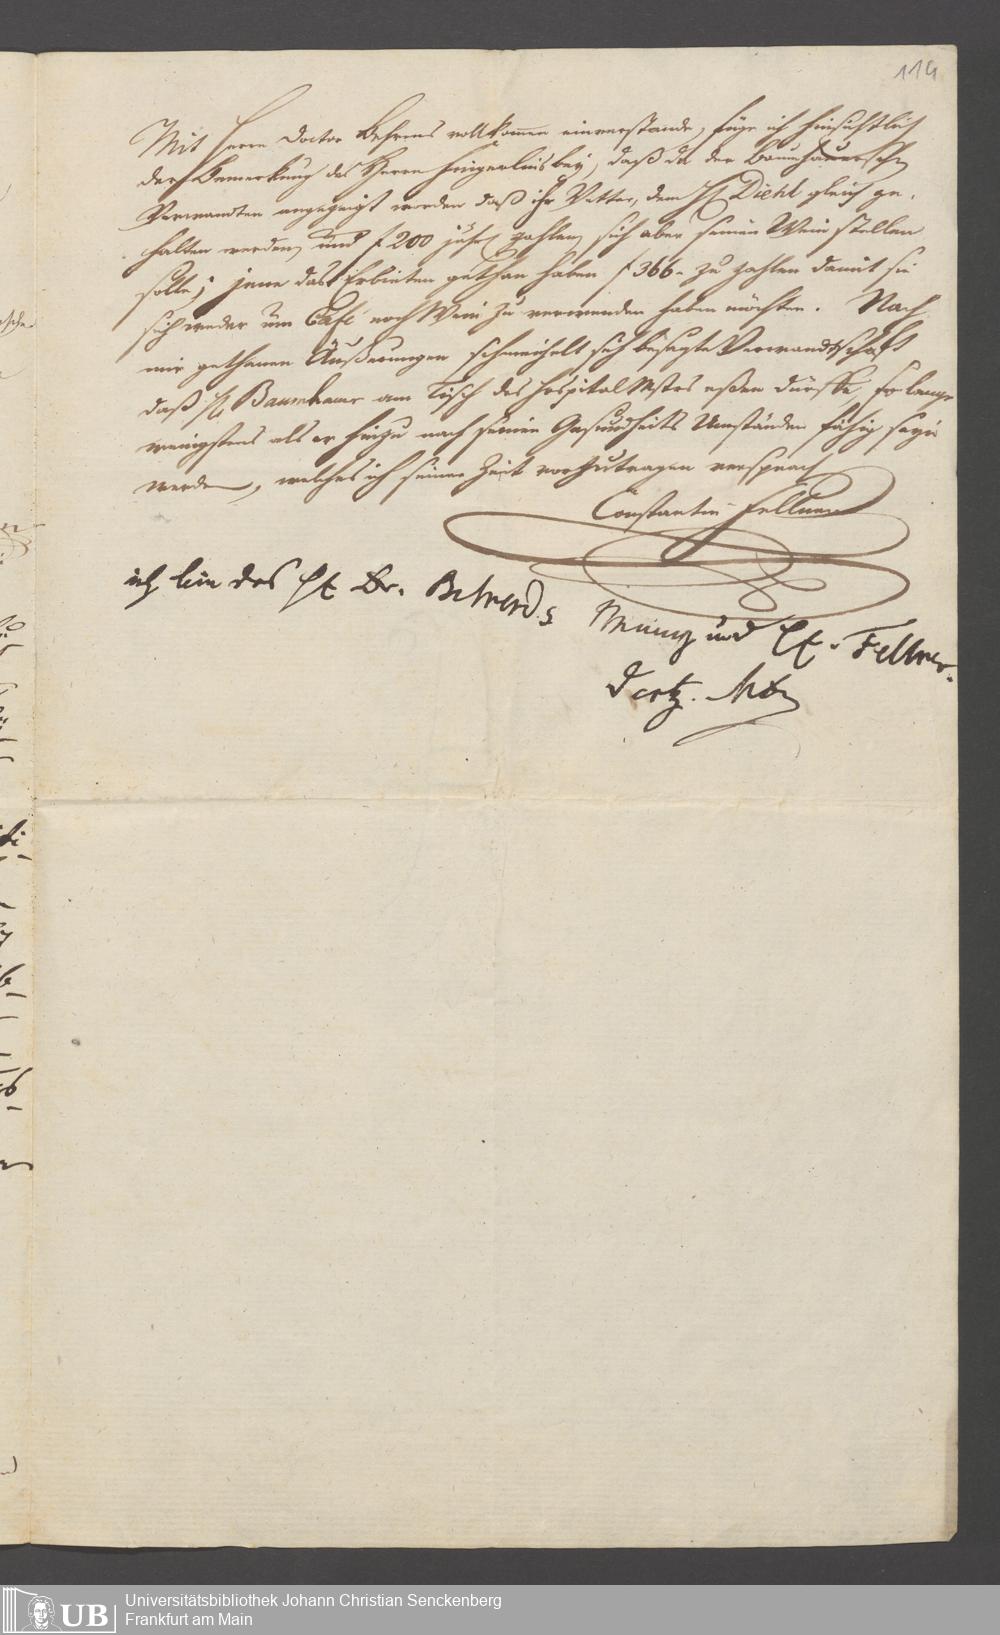 114
Mit Herrn Doctor Behrens vollkommen einverstanden, füge ich hinsichtlich
der Bemerkung des Herrn bey, daß da der Baumhauerschen
Verwandten angezeigt worden daß ihr Vetter, dem H. Diehl gleich ge-
halten werden, und f 200 jährl zahlen, sich aber seinen Wein stellen
solle; jene das Erbieten gethan haben f 366.- zu zahlen damit sie
sich weder um Café noch Wein zu verwenden haben möchten. Nach
mir gethanen Äußerungen schmeichelt sich besagte Verwandtschaft
daß H. Baumhauer am Tisch des Hospital Mstrs eßen dürffe, so lange
wenigstens als er hiezu nach seinen Gesundheits Umständen fähig seyn
werde, welches ich seiner Zeit vorzutragen versprach
Constantin Fellner
ich bin des H. Dr. Behrends Meinung und H. Fellner.
Universitätsbibliothek Johann Christian Senckenberg
Frankfurt am Main
UB